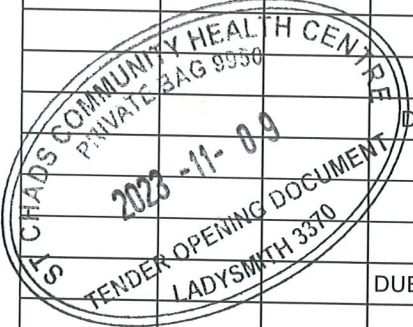 ST CHADS COMMUNITY HEALTH CENTRE
PRIVATE BAG 9950
2023 -11- 09
D
TENDER OPENING DOCUMENT
LADYSMITH 3370
DUE